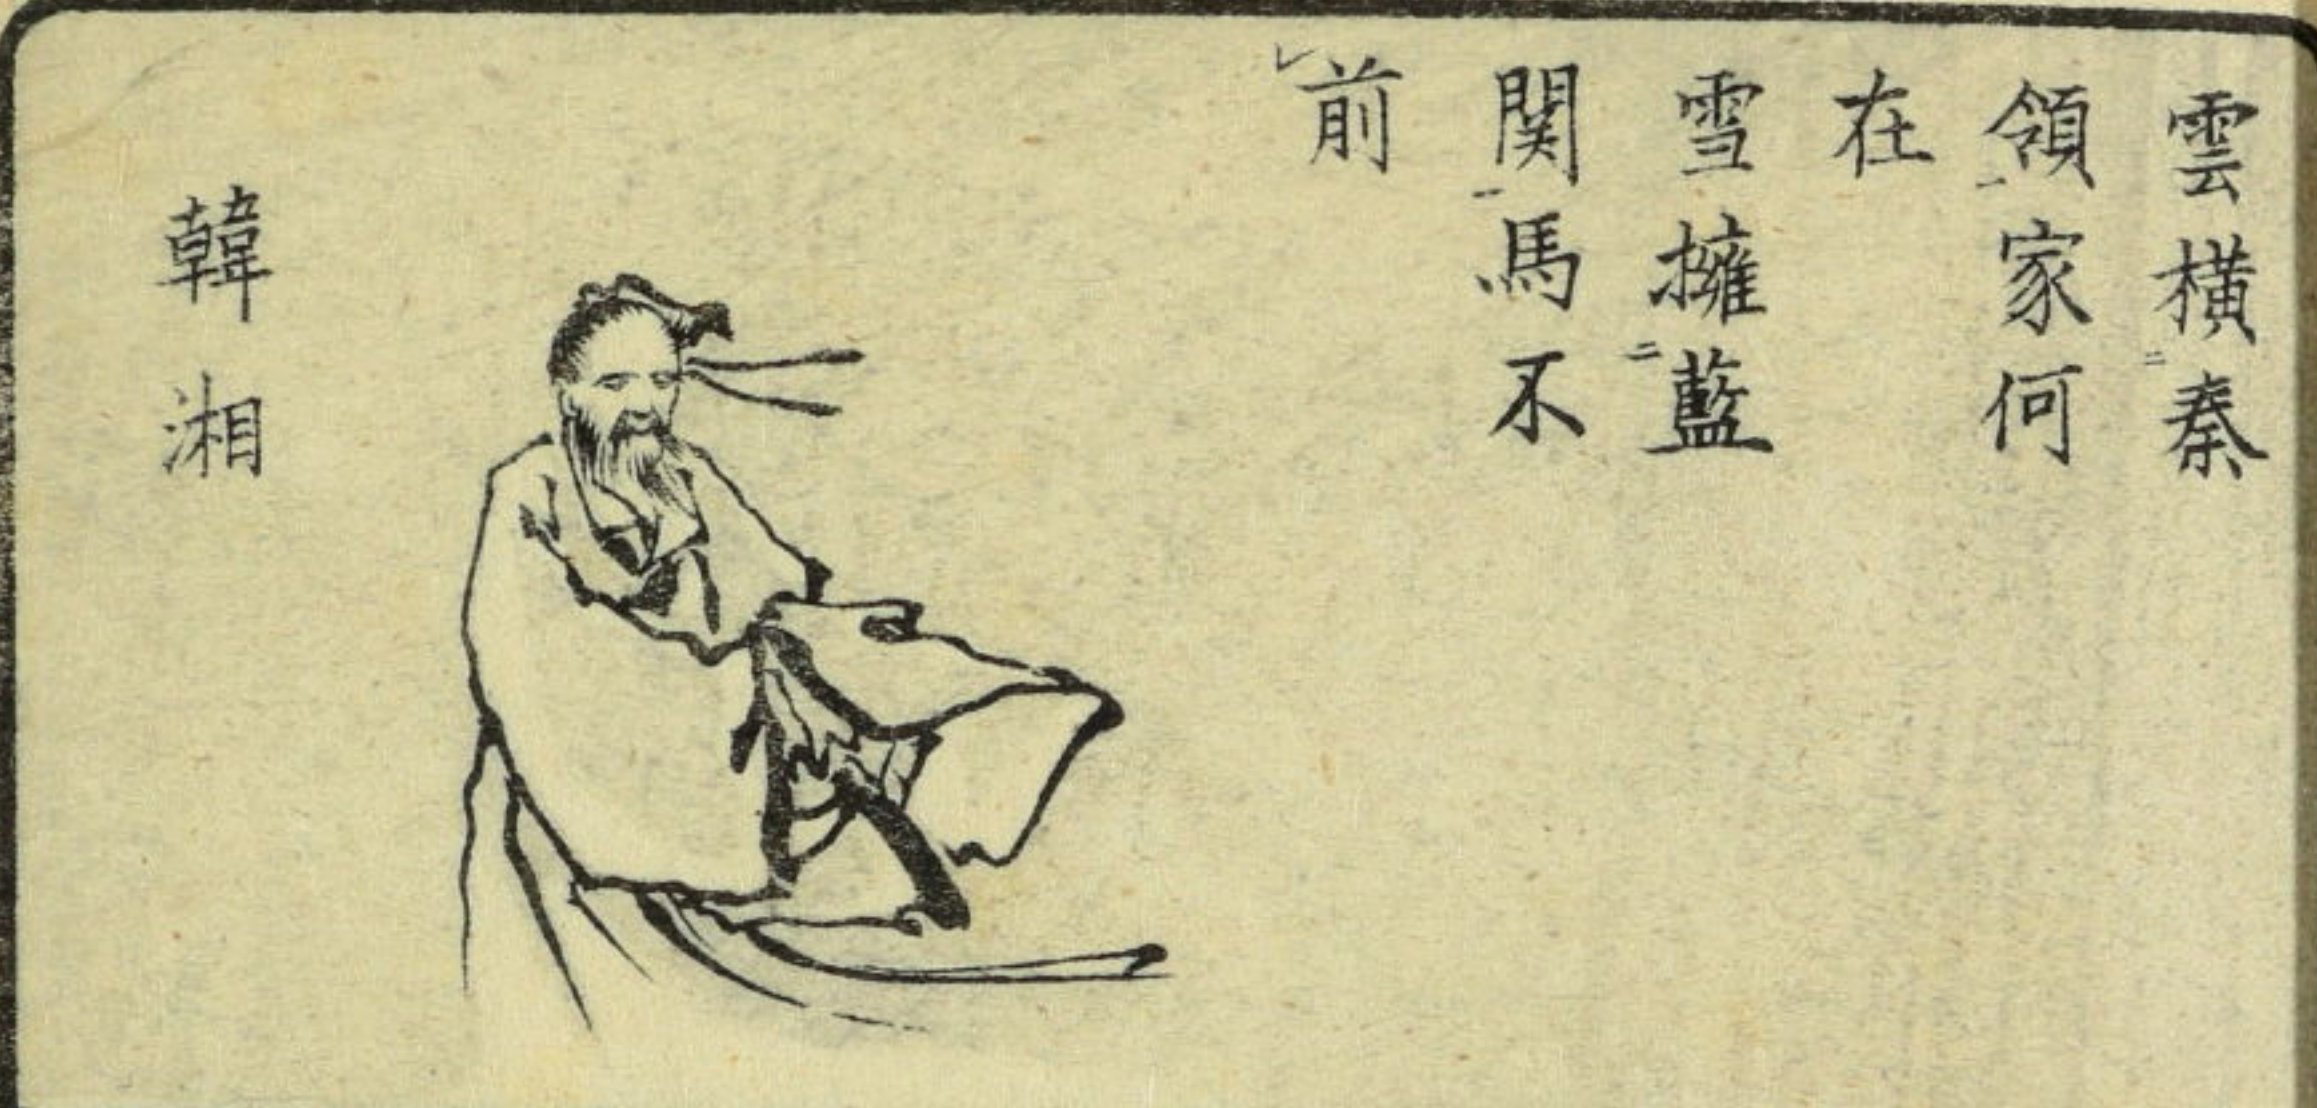 雲橫秦
領家何
在
雪擁藍
関馬不
前
韓湘